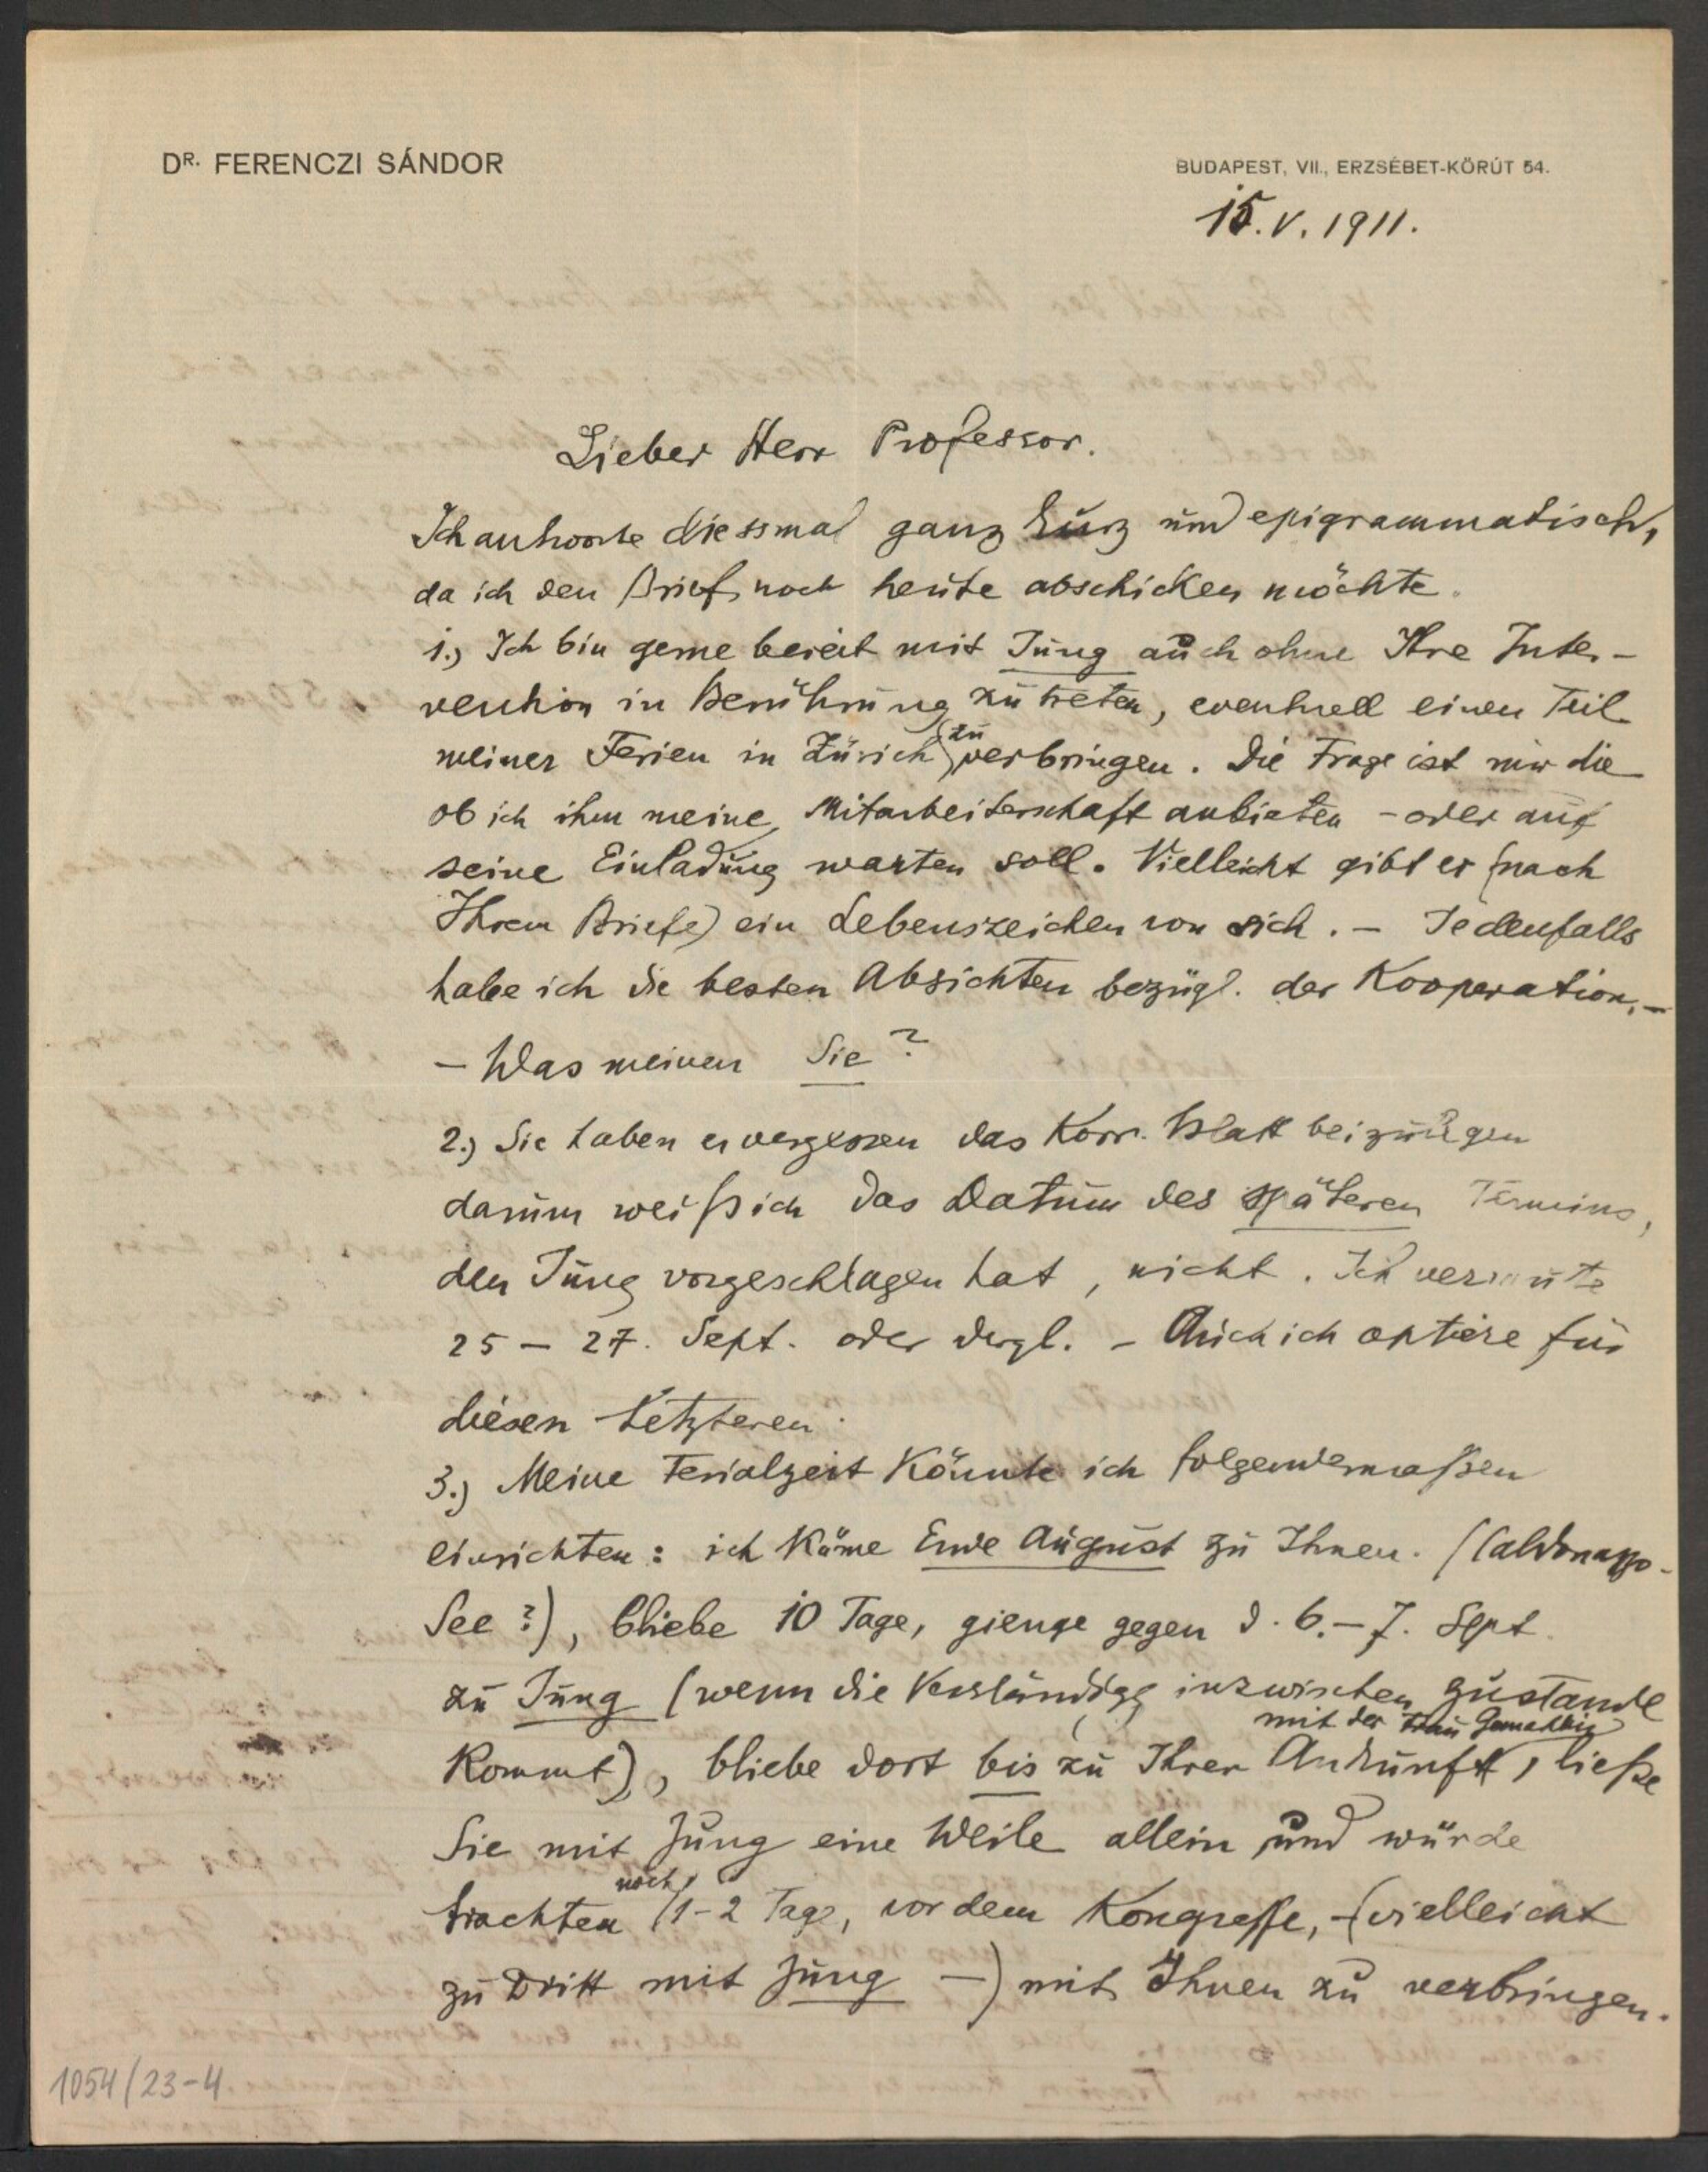 DR. FERENCZI SÁNDOR
BUDAPEST, VII., ERZSÉBET-KÖRÚT 54.
15. V. 1911.
Lieber Herr Professor.
Ich antworte diessmal ganz kurz und epigrammatisch,
da ich den Brief noch heute abschicken möchte.
1.) Ich bin gerne bereit mit Jung auch ohne Ihre Inter-
vention in Berührung zu treten, eventuell einen Teil
meiner Ferien in Zürich zu verbringen. Die Frage ist nur die
ob ich ihm meine Mitarbeiterschaft anbieten - oder auf
seine Einladung warten soll. Vielleicht gibt er (nach
Ihrem Briefe) ein Lebenszeichen von sich. – Jedenfalls
habe ich die besten Absichten bezügl. der Kooperation. –
– Was meinen Sie?
2.) Sie haben es vergessen das Korr. Blatt beizulegen
darum weiß ich das Datum des späteren Termins,
den Jung vorgeschlagen hat, nicht. Ich vermute
25 – 27. Sept. oder dergl. – Auch ich optiere für
diesen Letzteren.
3.) Meine Ferialzeit könnte ich folgendermaßen
einrichten: ich käme Ende August zu Ihnen. (Caldonazzo-
See?), bliebe 10 Tage, gienge gegen d. 6.–7. Sept.
zu Jung (wenn die Verständigg inzwischen zustande
kommt), bliebe dort bis zu Ihrer Ankunft mit der Frau Gemahlin, ließe
Sie mit Jung eine Weile allein und würde
trachten noch 1-2 Tage, vor dem Kongresse, - (vielleicht
zu Dritt mit Jung –) mit Ihnen zu verbringen.
1054/23-4